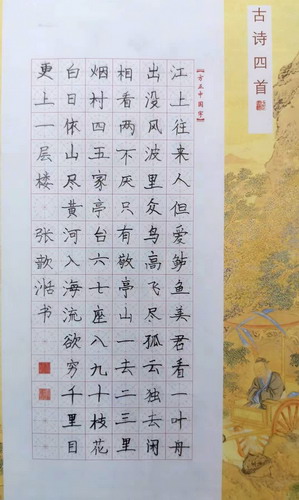 古诗四首
江上往来人但爱鲈鱼美君看一叶舟
出没风波里众鸟高飞尽孤云独去闲
相看两不厌只有敬亭山一去二三里
烟村四五家亭台六七座八九十枝花
白日依山尽黄河入海流欲穷千里目
更上一层楼 张歆湉书